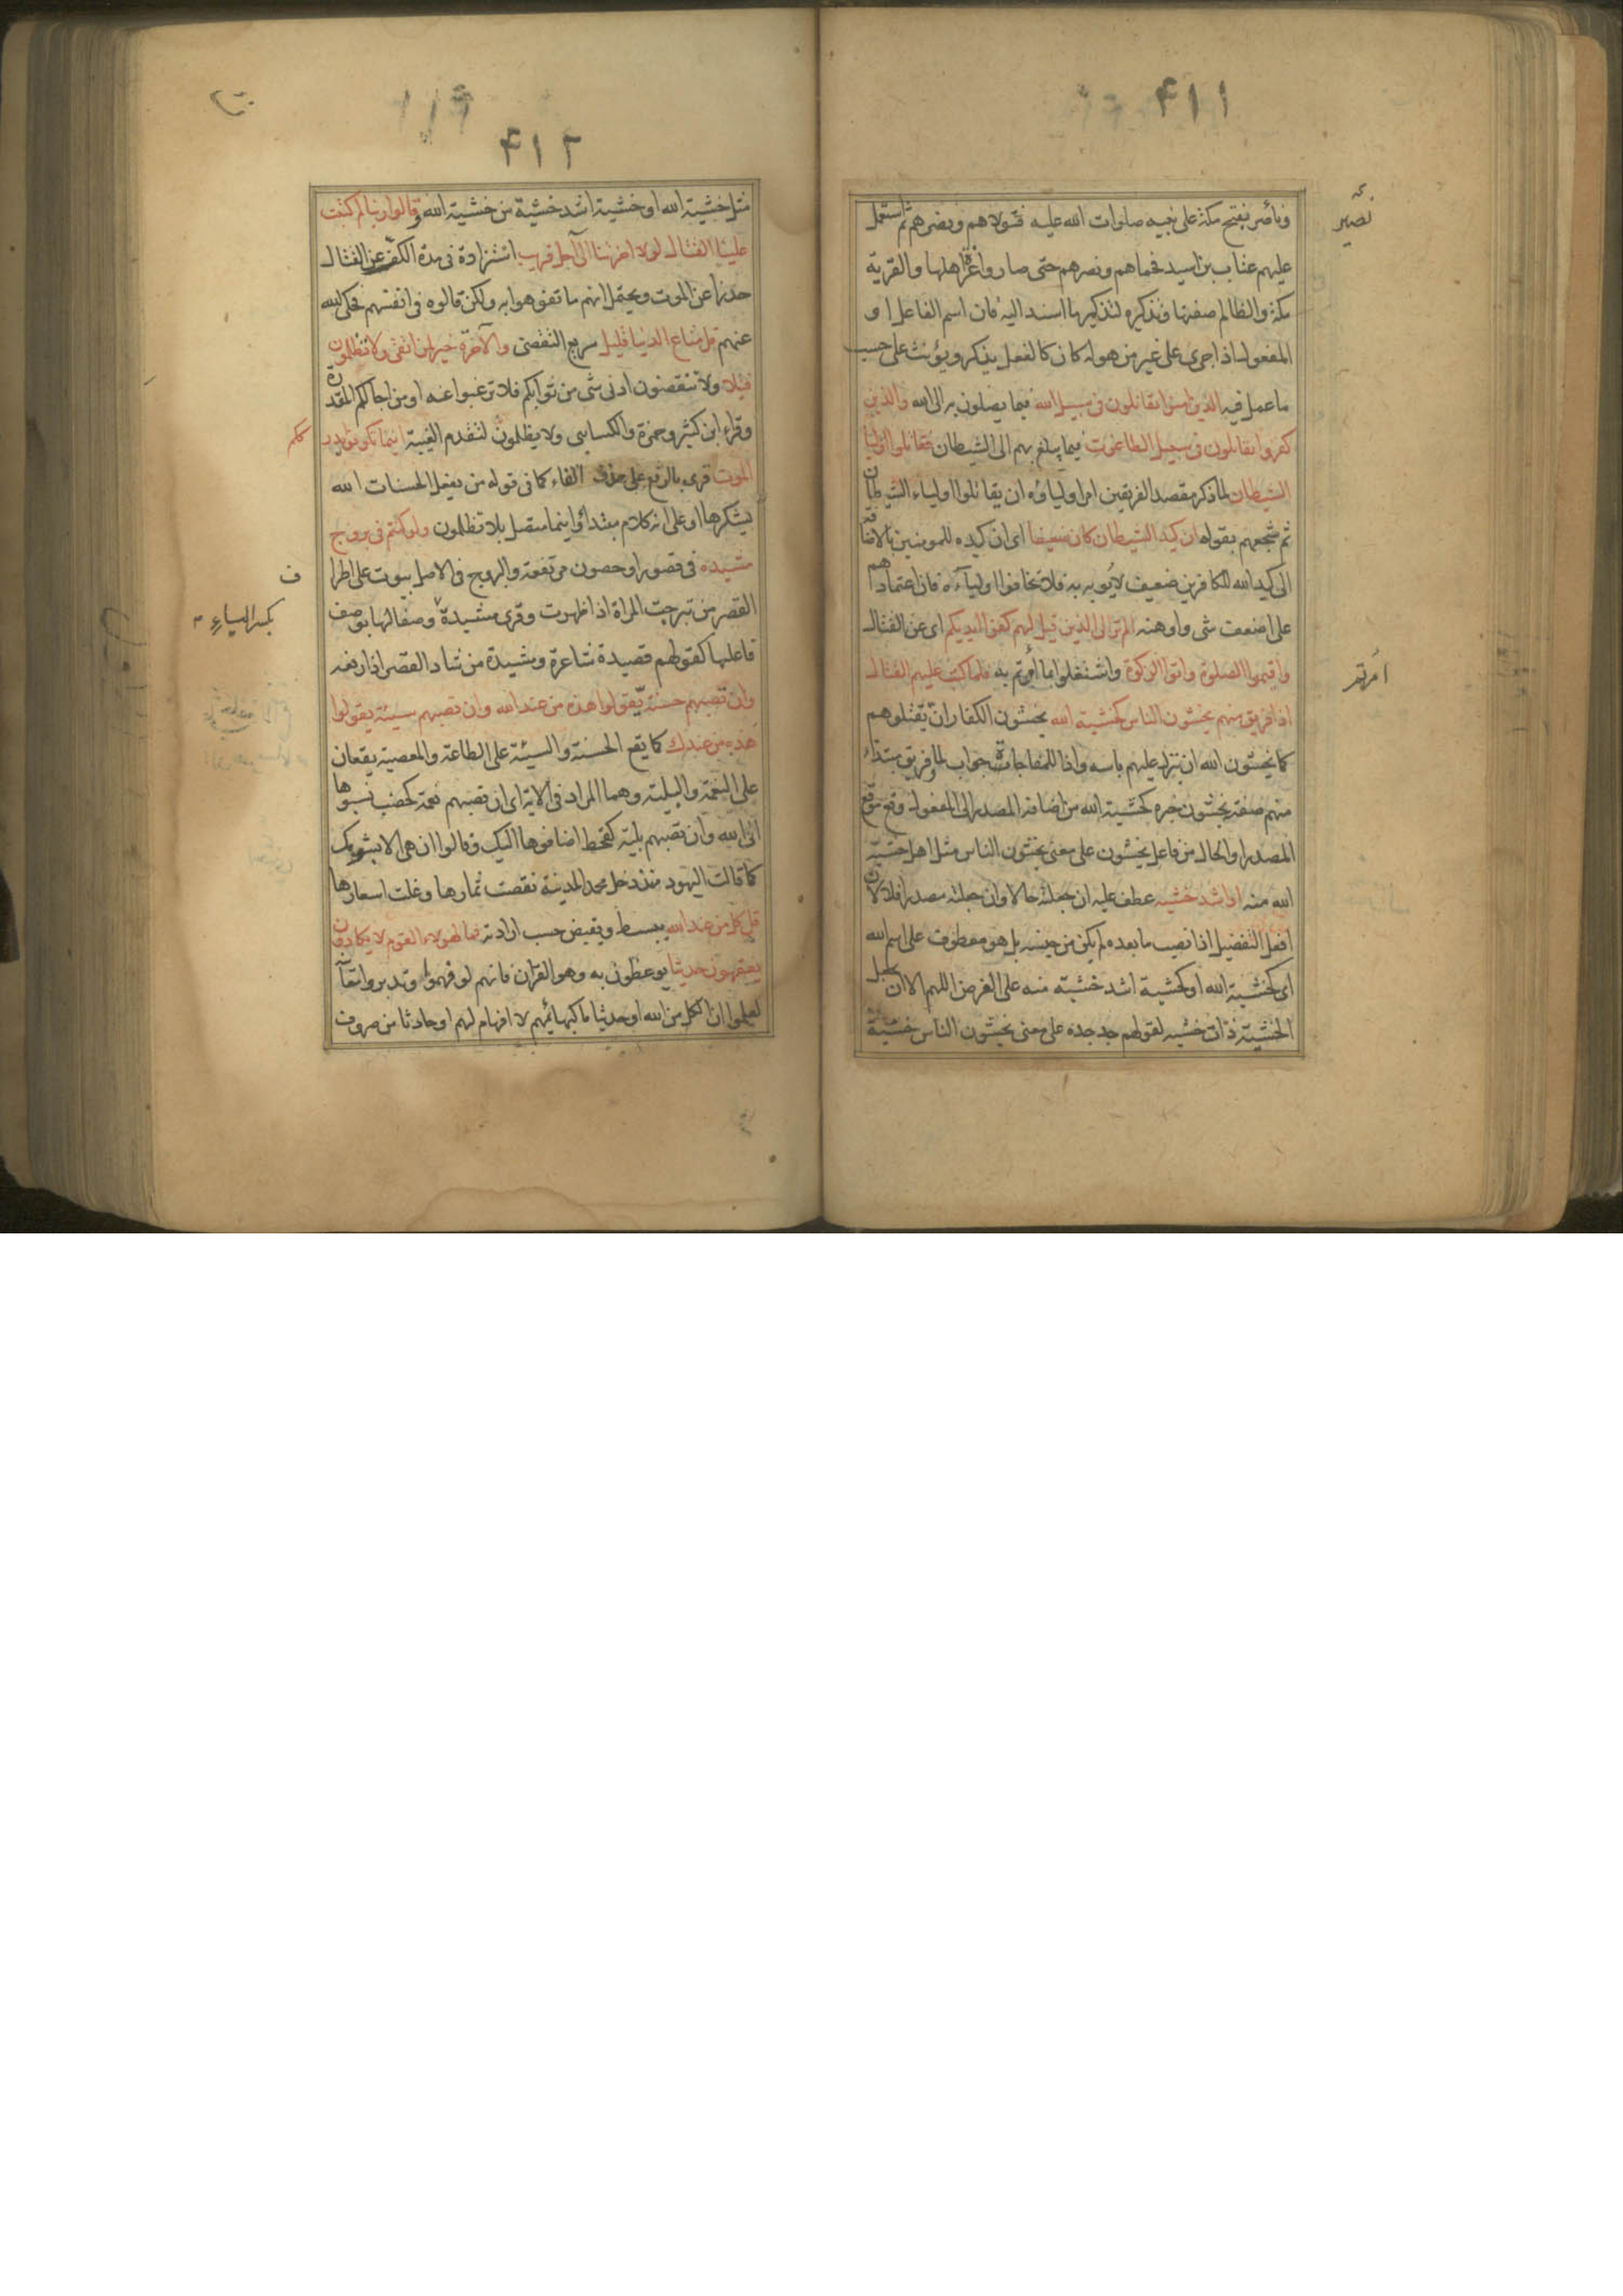 ۴۱۱
نصیر
وناصر بفتح مكة على نبيه صلوات الله عليه فتولاهم ونصرهم ثم استعمل
عليهم عتاب بن اسيد فحماهم ونصرهم حتى صاروا اعز اهلها والقرية
مكة والظالم صفتها وتذكيره لتذكير ما اسند اليه فان اسم الفاعل او
المفعول اذا جرى على غير من هو له كان كالفعل يذكر ويؤنث على حسب
ما عمل فيه الذين امنوا يقاتلون فى سبيل الله فيما يصلون به الى الله والذين
كفروا يقاتلون فى سبيل الطاغوت فيما يبلغ بهم الى الشيطان فقاتلوا اوليا
الشيطان لما ذكر مقصد الفريقين امر اولياؤه ان يقاتلوا اولياء الشيطان
ثم شجعهم بقوله ان كيد الشيطان كان ضعيفا اى ان كيده للمومنين بالاضافة
الى كيد الله للكافرين ضعيف لا يؤبه به فلا تخافوا اولياءه فان اعتمادهم
على اضعف شى واوهنه الم تر الى الذين قيل لهم كفوا ايديكم اى عن القتال
واقيموا الصلوة واتوا الزكوة واشتغلوا بما امرتم به فلما كتب عليهم القتال
امرتم
اذا فريق منهم يخشون الناس كخشية الله يخشون الكفار ان يقتلوهم
كما يخشون الله ان ينزل عليهم باسه واذا للمفاجاة جواب لما وفريق مبتداء
منهم صفته يخشون خبره كخشية الله من اضافة المصدر الى المفعول وقع موقع
المصدر او الحال من فاعل يخشون على معنى يخشون الناس مثل اهل خشية
الله منه او اشد خشية عطف عليه ان جعلته حالا وان جعلته مصدرا فلا لان
افعل التفضيل اذا نصب ما بعده لم يكن من جنسه بل هو معطوف على اسم الله
اى كخشية الله او كخشية اشد خشية منه على الفرض اللهم الا ان تجعل
الخشية ذات خشية لقولهم جد جده على معنى يخشون الناس خشية
۴۱۲
مثل خشية الله او خشية اشد خشية من خشية الله وقالوا ربنا لم كتبت
علينا القتال لولا اخرتنا الى اجل قريب استزادة فى مدة الكف عن القتال
حذرا عن الموت ويحتمل انهم ما تفوهوا به ولكن قالوه فى انفسهم فحكى الله
عنهم قل متاع الدنيا قليل سريع التقضى والآخرة خير لمن اتقى ولا تظلمون
فتيلا ولا تنقصون ادنى شى من ثوابكم فلا ترغبوا عنه او من اجالكم المقدرة
وقراء ابن كثير وحمزة والكسايى ولا يظلمون لتقدم الغيبة اينما تكونوا يدرككم
الموت قرى بالرفع على حذف الفاء كما فى قوله من يفعل الحسنات الله
يشكرها او على انه كلام مبتدأ واينما متصل بلا تظلمون ولو كنتم فى بروج
مشيدة فى قصور او حصون مرتفعة والبروج فى الاصل بيوت على اطرا
ف
القصر من تبرجت المراة اذا ظهرت وقرى مشيدة وصفا لها بوصف
بكسر الياء
فاعلها كقولهم قصيدة شاعرة ومشيدة من شاد القصر اذا رفعه
وان تصبهم حسنة يقولوا هذه من عند الله وان تصبهم سيئة يقولوا
هذه من عندك كما يقع الحسنة والسيئة على الطاعة والمعصية يقعان
على النعمة والبلية وهما المراد فى الاية اى ان تصبهم نعمة كخصب نسبوها
الى الله وان تصبهم بلية كقحط اضافوها اليك وقالوا ان هى الا بشومك
كما قالت اليهود منذ دخل محمد المدينة نقصت ثمارها وغلت اسعارها
قل كل من عند الله يبسط ويقبض حسب ارادته فما لهولاء القوم لا يكادون
يفقهون حديثا يوعظون به وهو القران فانهم لو فهموا وتدبروا معانا
لعلموا ان الكل من الله او حديثا ما كبهائمهم لا افهام لهم او حادثا من صروف